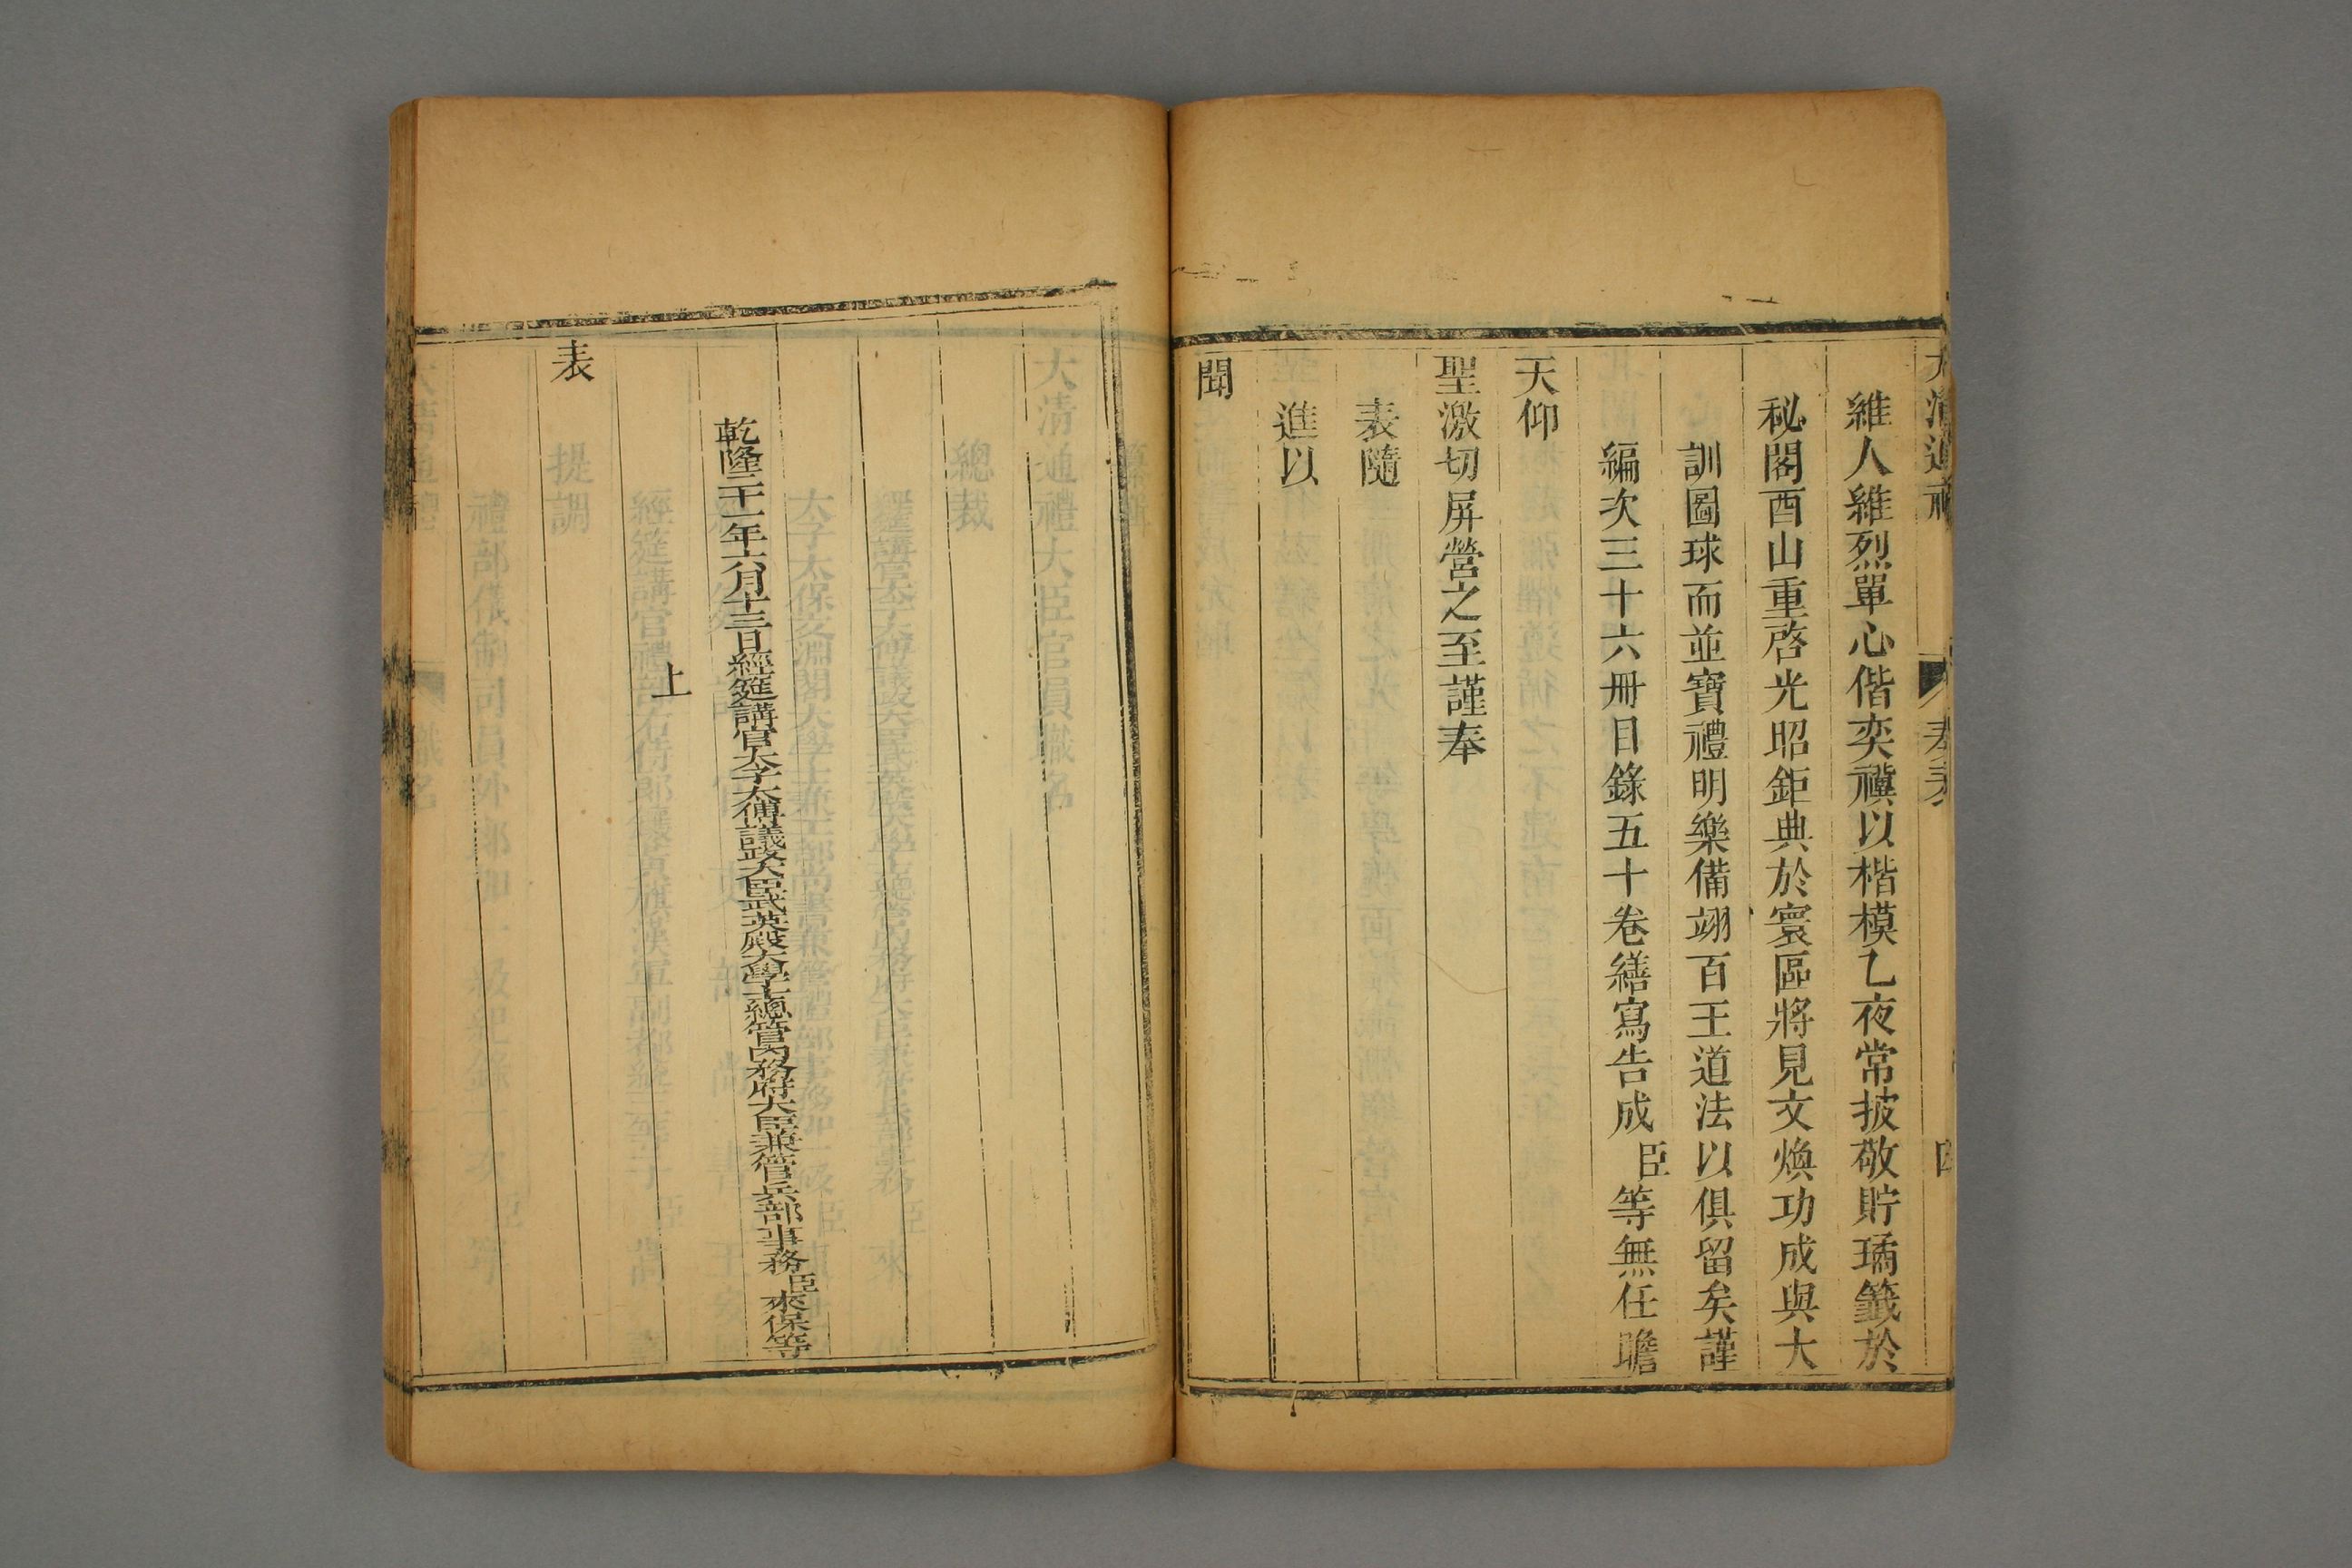 大清通禮 表 四
維人維烈單心偕奕禩以楷模乙夜常披敬貯璚籤於
秘閣酉山重啓光昭鉅典於寰區將見文煥功成與大
訓圖球而並寶禮明樂備翊百王道法以俱留矣謹
編次三十六冊目錄五十卷繕寫告成臣等無任瞻
天仰
聖激切屏營之至謹奉
表隨
進以
聞
乾隆二十一年六月十三日經筵講官太子太傅議政大臣武英殿大學士總管內務府大臣兼管兵部事務臣來保等
上
表